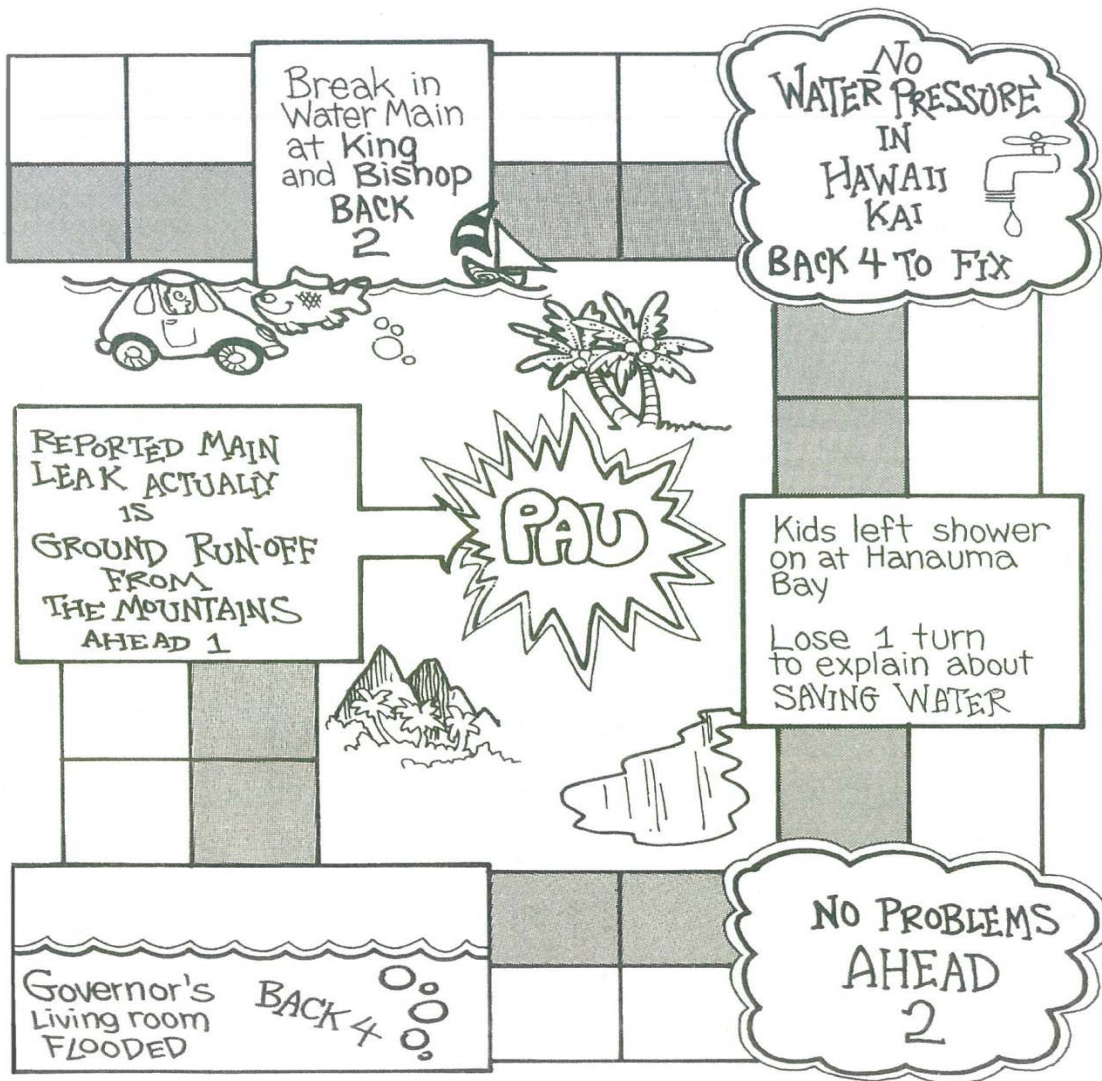 Break in
Water Main
at King
and Bishop
BACK
2
NO
WATER PRESSURE
IN
HAWAII
KAI
BACK 4 TO FIX
REPORTED MAIN
LEAK ACTUALLY
IS
GROUND RUN-OFF
FROM
THE MOUNTAINS
AHEAD 1
PAU
Kids left shower
on at Hanauma
Bay
Lose 1 turn
to explain about
SAVING WATER
Governor's
Living room
FLOODED
BACK 4
NO PROBLEMS
AHEAD
2